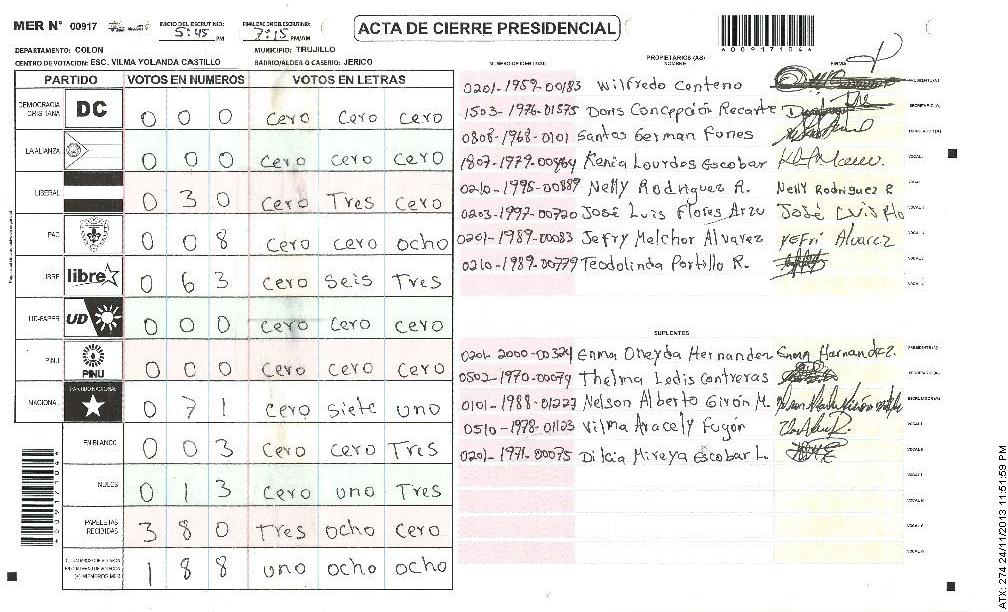 MER Nº 00917 INICIO DEL ESCRUTINIO: 5:45 PM FINALIZACION ESCRUTINIO: 7:15 PM/AM ACTA DE CIERRE PRESIDENCIAL
DEPARTAMENTO: COLON MUNICIPIO: TRUJILLO
CENTRO DE VOTACION: ESC. VILMA YOLANDA CASTILLO BARRIO/ALDEA O CASERIO: JERICO
PARTIDO VOTOS EN NUMEROS VOTOS EN LETRAS
DEMOCRACIA CRISTIANA DC 0 0 0 cero cero cero
LA ALIANZA 0 0 0 cero cero cero
LIBERAL 0 3 0 cero Tres cero
PAC 0 0 8 cero cero ocho
LIBRE libre 0 6 3 cero seis Tres
UD-FAPER UD 0 0 0 cero cero cero
PINU PINU 0 0 0 cero cero cero
NACIONAL PARTIDO NACIONAL 0 7 1 cero siete uno
EN BLANCO 0 0 3 cero cero Tres
NULOS 0 1 3 cero uno Tres
PAPELETAS RECIBIDAS 3 8 0 Tres ocho cero
1 8 8 uno ocho ocho
0009171044
PROPIETARIOS (AS)
NUMERO DE IDENTIDAD NOMBRE FIRMA
0201-1959-00183 Wilfredo Centeno PRESIDENTE(A)
1503-1976-01575 Doris Concepción Recarte SECRETARIO(A)
0808-1968-0101 Santos German Funes ESCRUTADOR(A)
1807-1979-00864 Kenia Lourdes Escobar VOCAL I
0210-1995-00887 Nelly Rodriguez R. Nelly Rodriguez R
0203-1997-00720 José Luis Flores Arzu José Luis Flo
0201-1989-00083 Jefry Melchor Alvarez yefri Alvarez
0210-1989-00779 Teodolinda Portillo R.
SUPLENTES
0201-2000-00324 Enma Oneyda Hernandez Enma Hernandez. PRESIDENTE(A)
0802-1970-00079 Thelma Ledis Contreras SECRETARIO(A)
0101-1988-01227 Nelson Alberto Girón M. ESCRUTADOR(A)
0510-1978-01123 Vilma Aracely Fugón VOCAL I
0201-1971-00075 Dilcia Mireya Escobar L. VOCAL II
ATX: 274 24/11/2013 11:51:59 PM